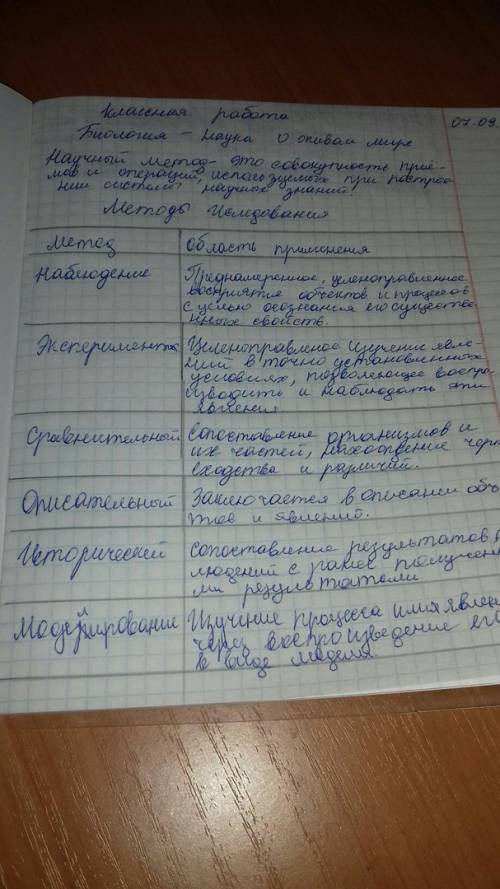 Классная работа
07.09.
Биология - наука о живой мире
Научный метод - это совокупность приё-
мов и операций, используемых при построе-
нии системы научных знаний.
Методы Исследования
Метод
Область применения
Наблюдение
Преднамеренное, целеноправленное
восприятие объектов и процессов
с целью осознания его существе
нных свойств.
Эксперимент
Целеноправленое изучение явле-
ний в точно установленных
условиях, позволяющее воспро
изводить и наблюдать эти
явления
Сравнительный
Сопоставление организмов и
их частей, нахождение
сходства и различий.
Описательный
Заключается в описании объ
тов и явлений.
Исторический
Сопоставление результатов
людений с ранее получен
ми результатами
Моделирование
Изучение процесса или явлен
через воспроизведение его
в виде моделя